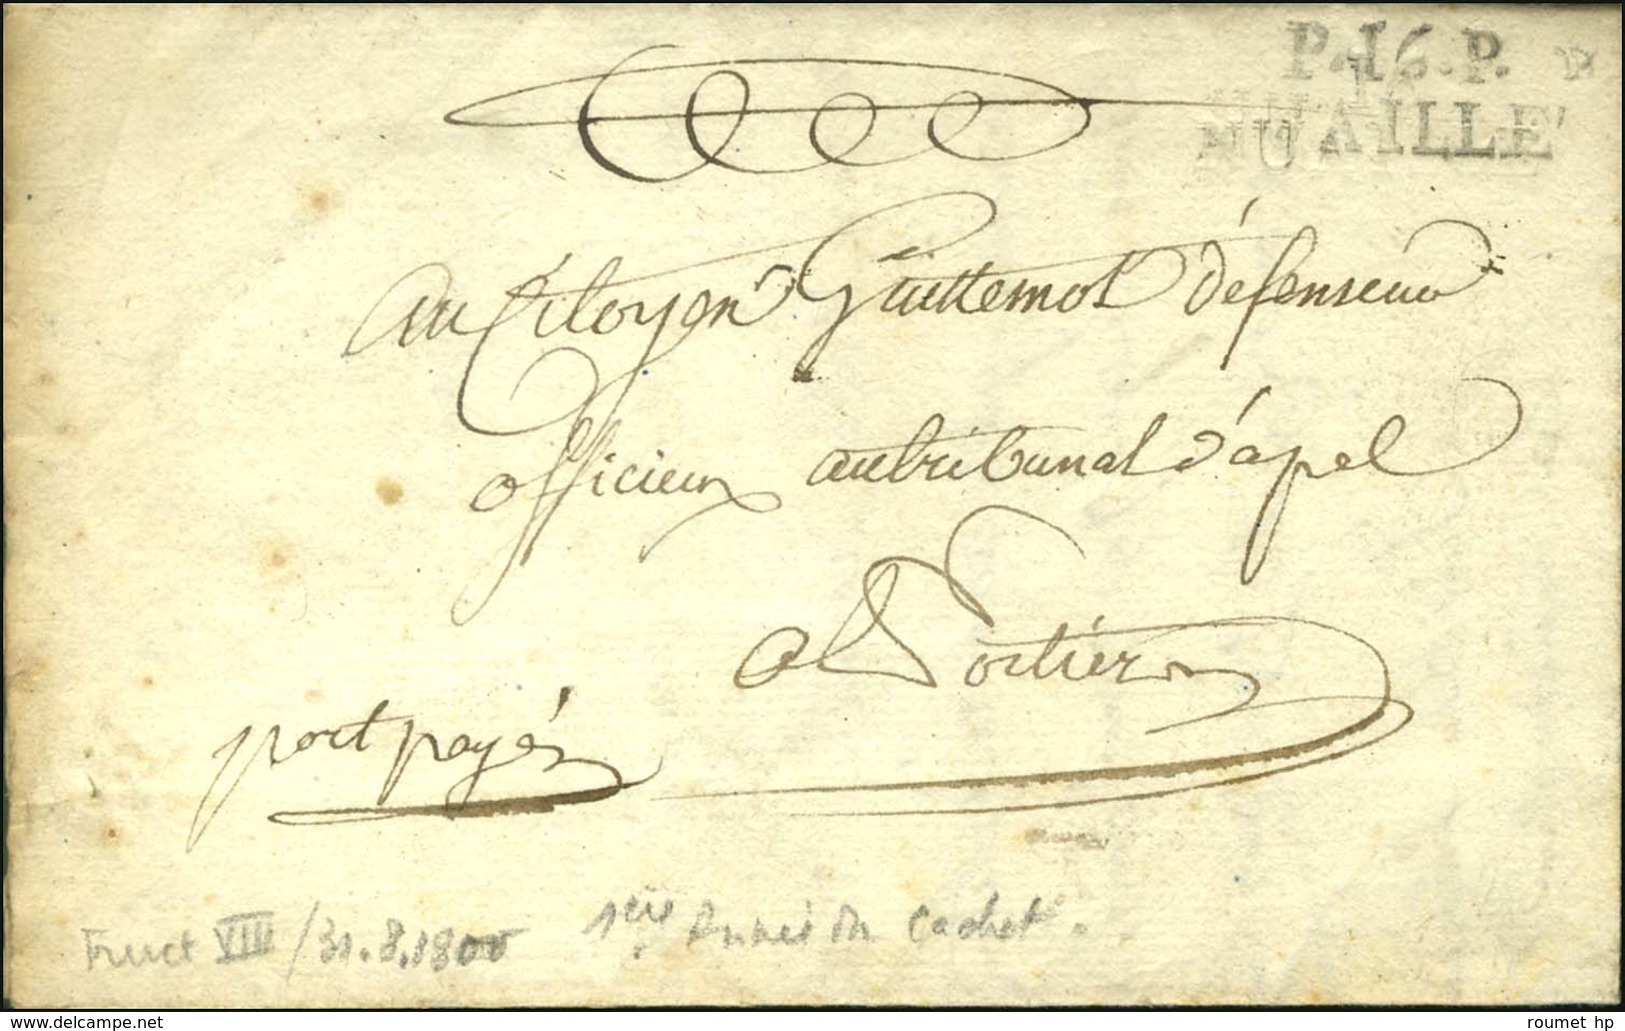 P.16.P.
NUAILLÉ
au Citoyen Guittemot défenseur
officieux au tribunal d'apel
a Poitiers
port payés
Fruct VIII / 31.8.1800 1ère Année du Cachet.
roumet hp